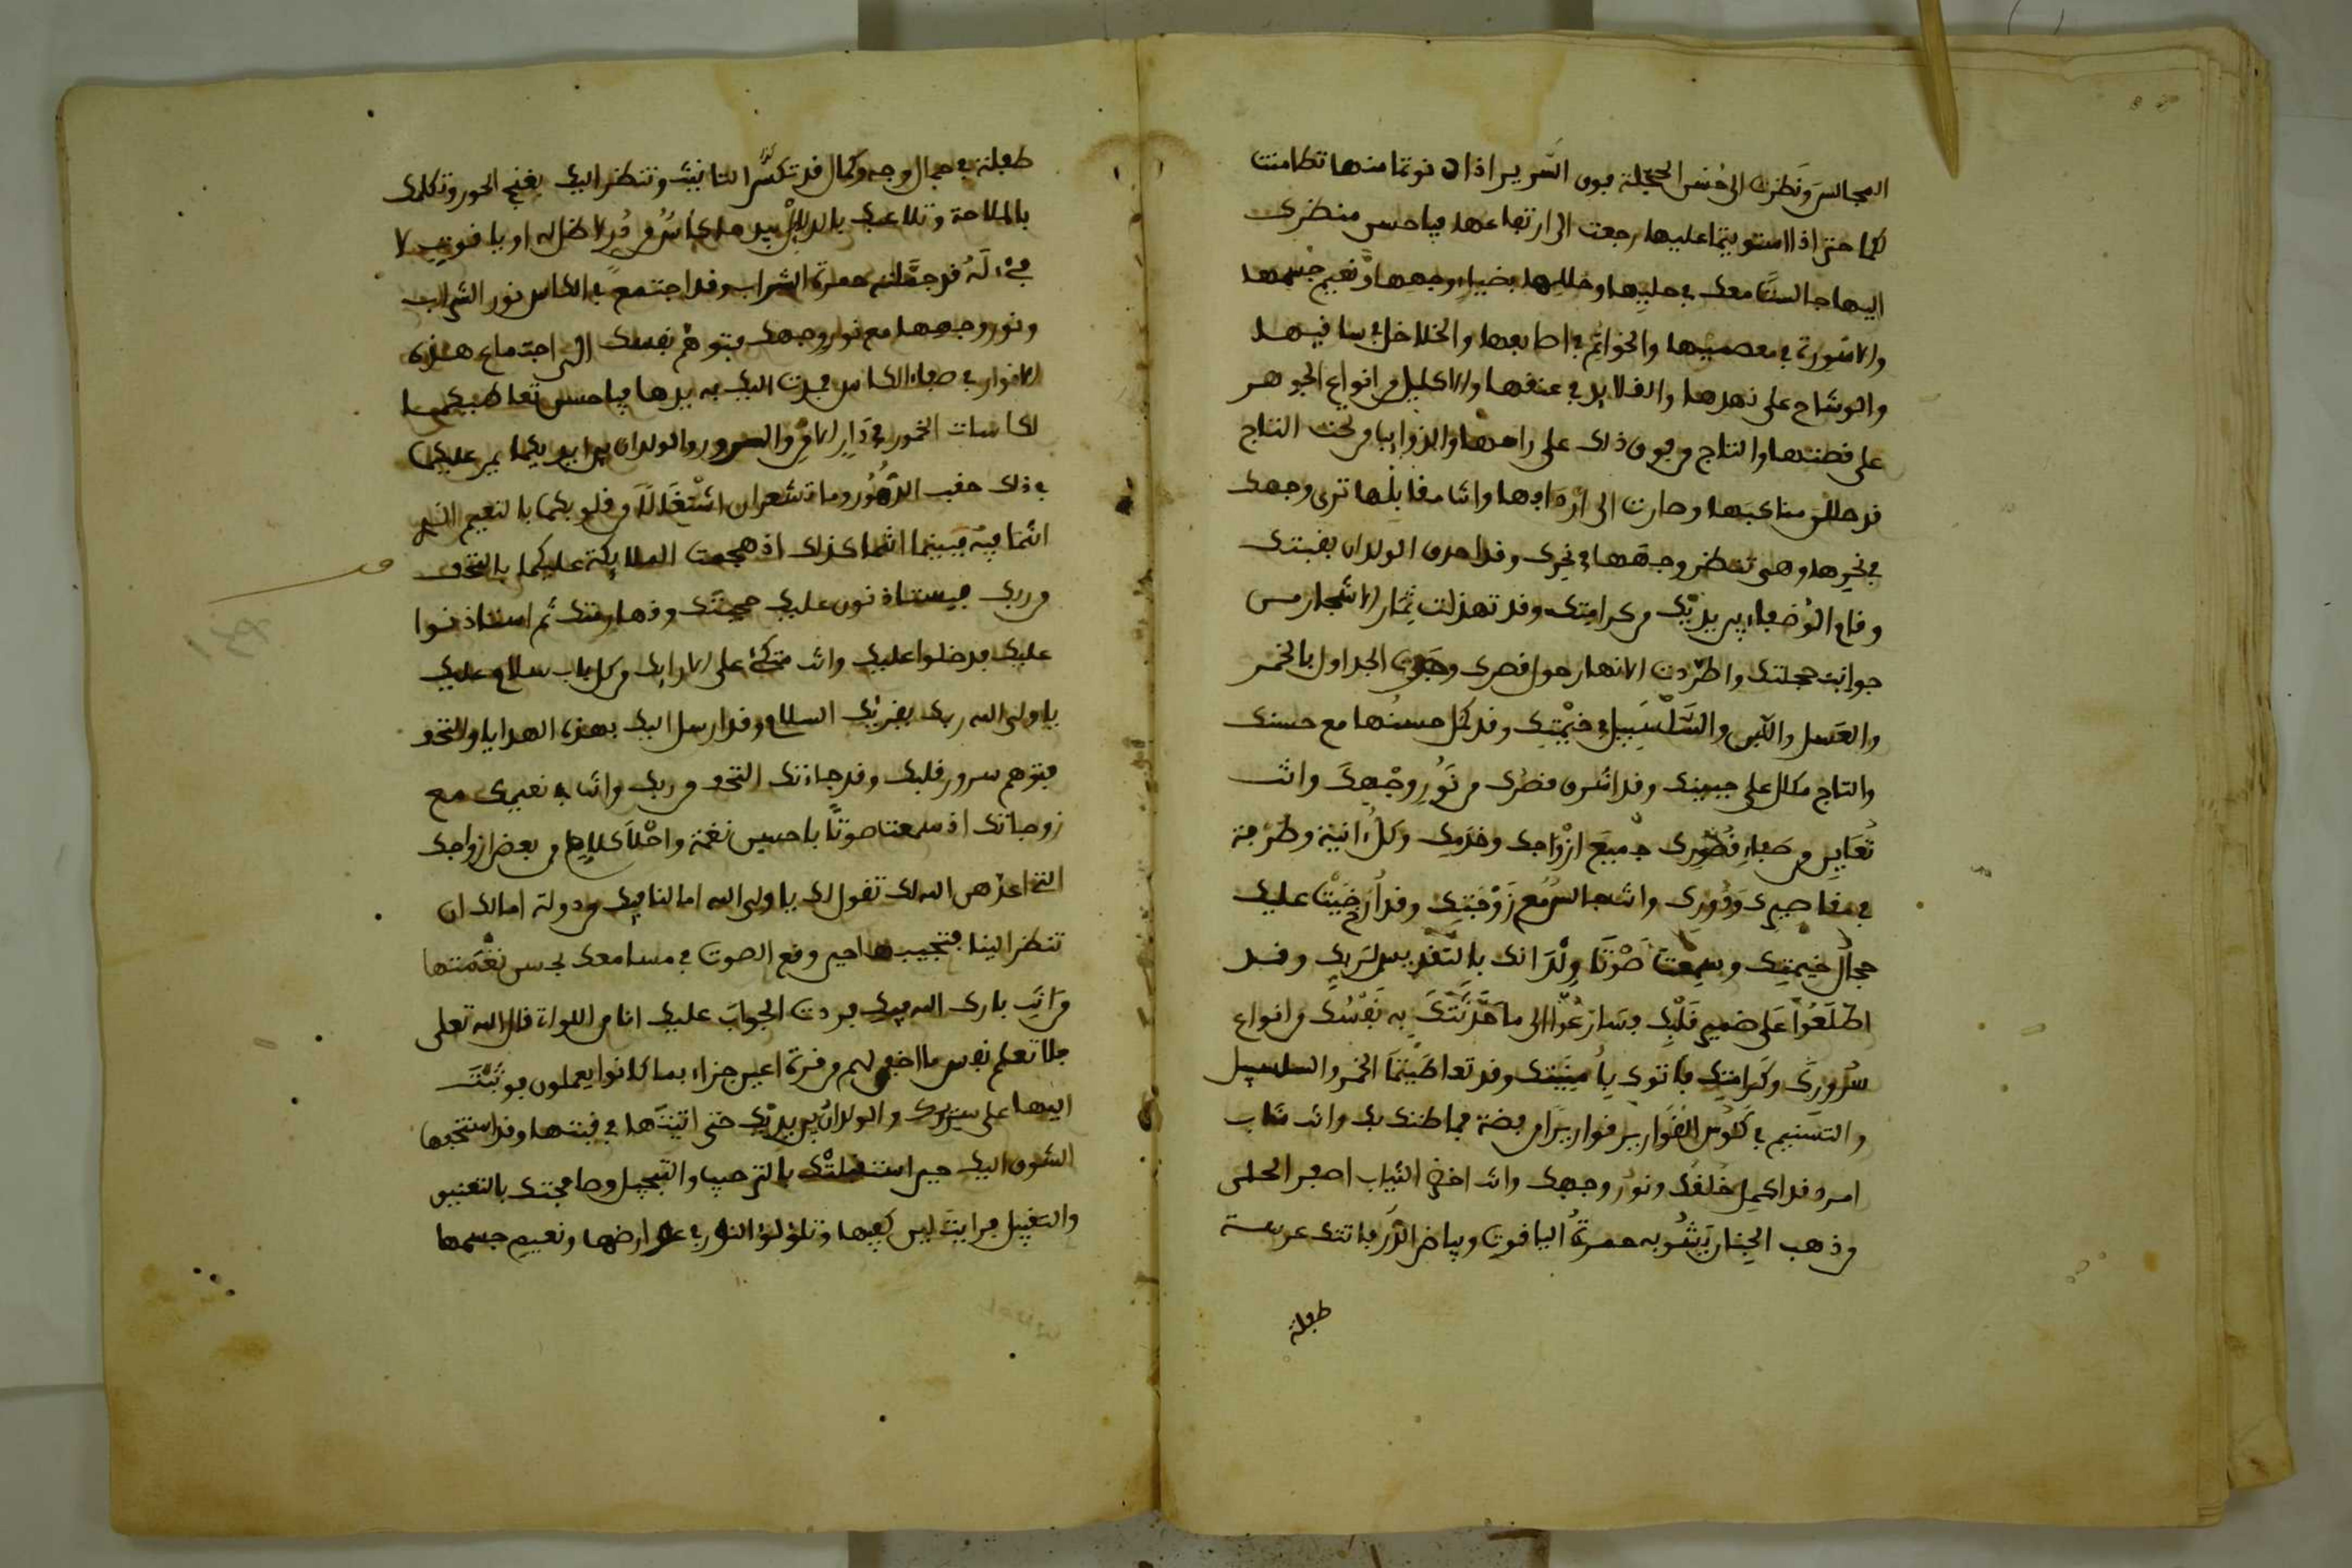 المجالس ونظرت الى حسن الحجلة فوق السرير اذا دنوتما منها تطامنت
لكما حتى اذا استويتما عليها رجعت الى ارتفاعها فيا حسن منظرك
اليها جالستا معك في حليها وحللها بضياء وجهها ونعيم جسمها
والاسورة في معصميها والخواتم في اصابعها والخلاخل في ساقيها
والوشاح على نهدها والقلايد في عنقها والاكليل من انواع الجوهر
على قصتها والتاج من فوق ذلك على راسها والذوايب من تحت التاج
قد جللن مناكبها وصارت الى اردافها وانت مقابلها ترى وجهك
في نحرها وهي تنظر وجهها في نحرك وقد احدق الولدان بقبتك
وقام الوصفاء بين يديك من كرامتك وقد تهدلت ثمار الاشجار من
جوانب حجلتك واطردت الانهار حول قصرك وجرت الجداول بالخمر
والعسل واللبن والسلسبيل في خيمتك وقد كمل حسنها مع حسنك
والتاج مكلل على جبينك وقد اشرق قصرك من نور وجهك وانت
تعاين من صفاء قصورك جميع ازواجك وخدمك وكل انية وطرفة
في مقاصيرك ودورك وانت جالس مع زوجتك وقد ارخيت عليك
حجال خيمتك وسمعت صوتا ولدانك بالتقديس لربك وقد
اطلعوا على ضمير قلبك فسارعوا الى ما حدثتك به نفسك من انواع
سرورك وكرامتك فاتوك بامنيتك وقد تعاطيتما الخمر والسلسبيل
والتسنيم في كؤوس القوارير قوارير من فضة فما ظنك بك وانت شاب
امرد قد اكمل خلقك ونور وجهك وانت اخضر الثياب اصفر الحلي
من ذهب الجنان يشوبه حمرة الياقوت وبياض الدر فاتتك عروسة
طفلة
طفلة في جمال وجه وكمال قد تكسر التانيث وتنظر اليك بغنج الحور وتكلمك
بالملاحة وتلاعبك بالدلال بيدها كاس من در لا ظل له او ياقوت لا
فيء له قد جللته حمرة الشراب وقد اجتمع في الكاس نور الشراب
ونور وجهها مع نور وجهك فتوهم نفسك الى اجتماع هذه
الانوار في صفاء الكاس فمدت اليك به يدها فيا حسن تعاطيكما
لكاسات الخمور في دار الامن والسرور والولدان بين ايديكما يمر عليكما
في ذلك حقب الدهور وما تشعران اشتغالا من قلوبكما بالنعيم الذي
انتما فيه فبينما انتما كذلك اذ هجمت الملايكة عليكما بالتحف
من ربك فيستاذنون عليك حجبتك وقهارمتك ثم استاذنوا
عليك فدخلوا عليك وانت متكئ على الارايك من كل باب سلام عليك
يا ولي الله ربك يقريك السلام وقد ارسل اليك بهذه الهدايا والتحف
فتوهم سرور قلبك وقد جاءتك التحف من ربك وانت في نعيمك مع
زوجاتك اذ سمعت صوتا باحسن نغمة واحلا كلام من بعض ازواجك
التي اعدهن الله لك تقول لك يا ولي الله اما لنا فيك من دولة اما لك ان
تنظر الينا فتجيبها حين وقع الصوت في مسامعك بحسن نغمتها
من انت بارك الله فيك فردت الجواب عليك انا من اللواتي قال الله تعلى
فلا تعلم نفس ما اخفي لهم من قرة اعين جزاء بما كانوا يعملون فوثبت
اليها على سريرك والولدان بين يديك حتى اتيتها في قبتها وقد استخفها
الشوق اليك حين استقبلتك بالترحيب والتبجيل وصافحتك بالتعنيق
والتقبيل فرايت لين كفيها وتلؤلؤ النور في عوارضها ونعيم جسمها